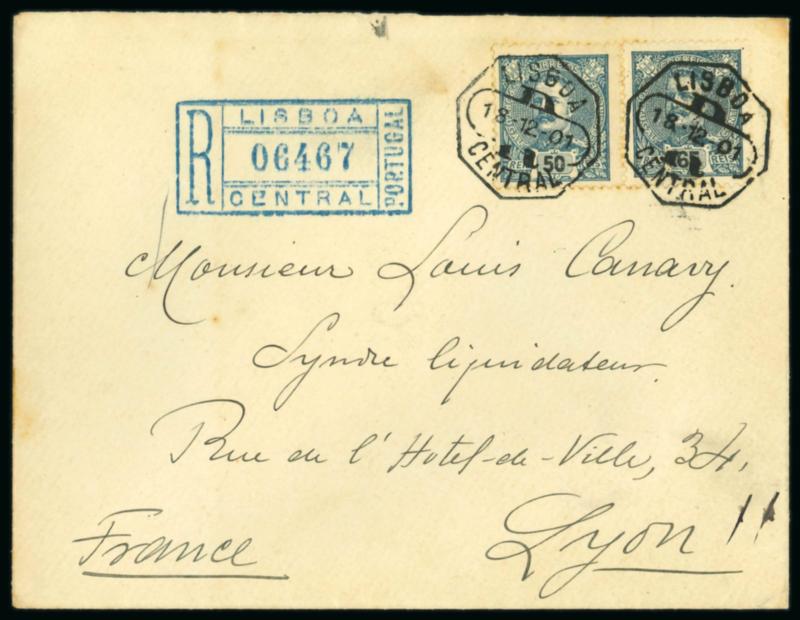 LISBOA
R 06467 PORTUGAL
CENTRAL
LISBOA
18-12-01
CENTRAL
50
LISBOA
18-12-01
CENTRAL
65
Monsieur Louis Canavy.
liquidateur.
Rue de l'Hotel-de-Ville, 34,
Lyon
France